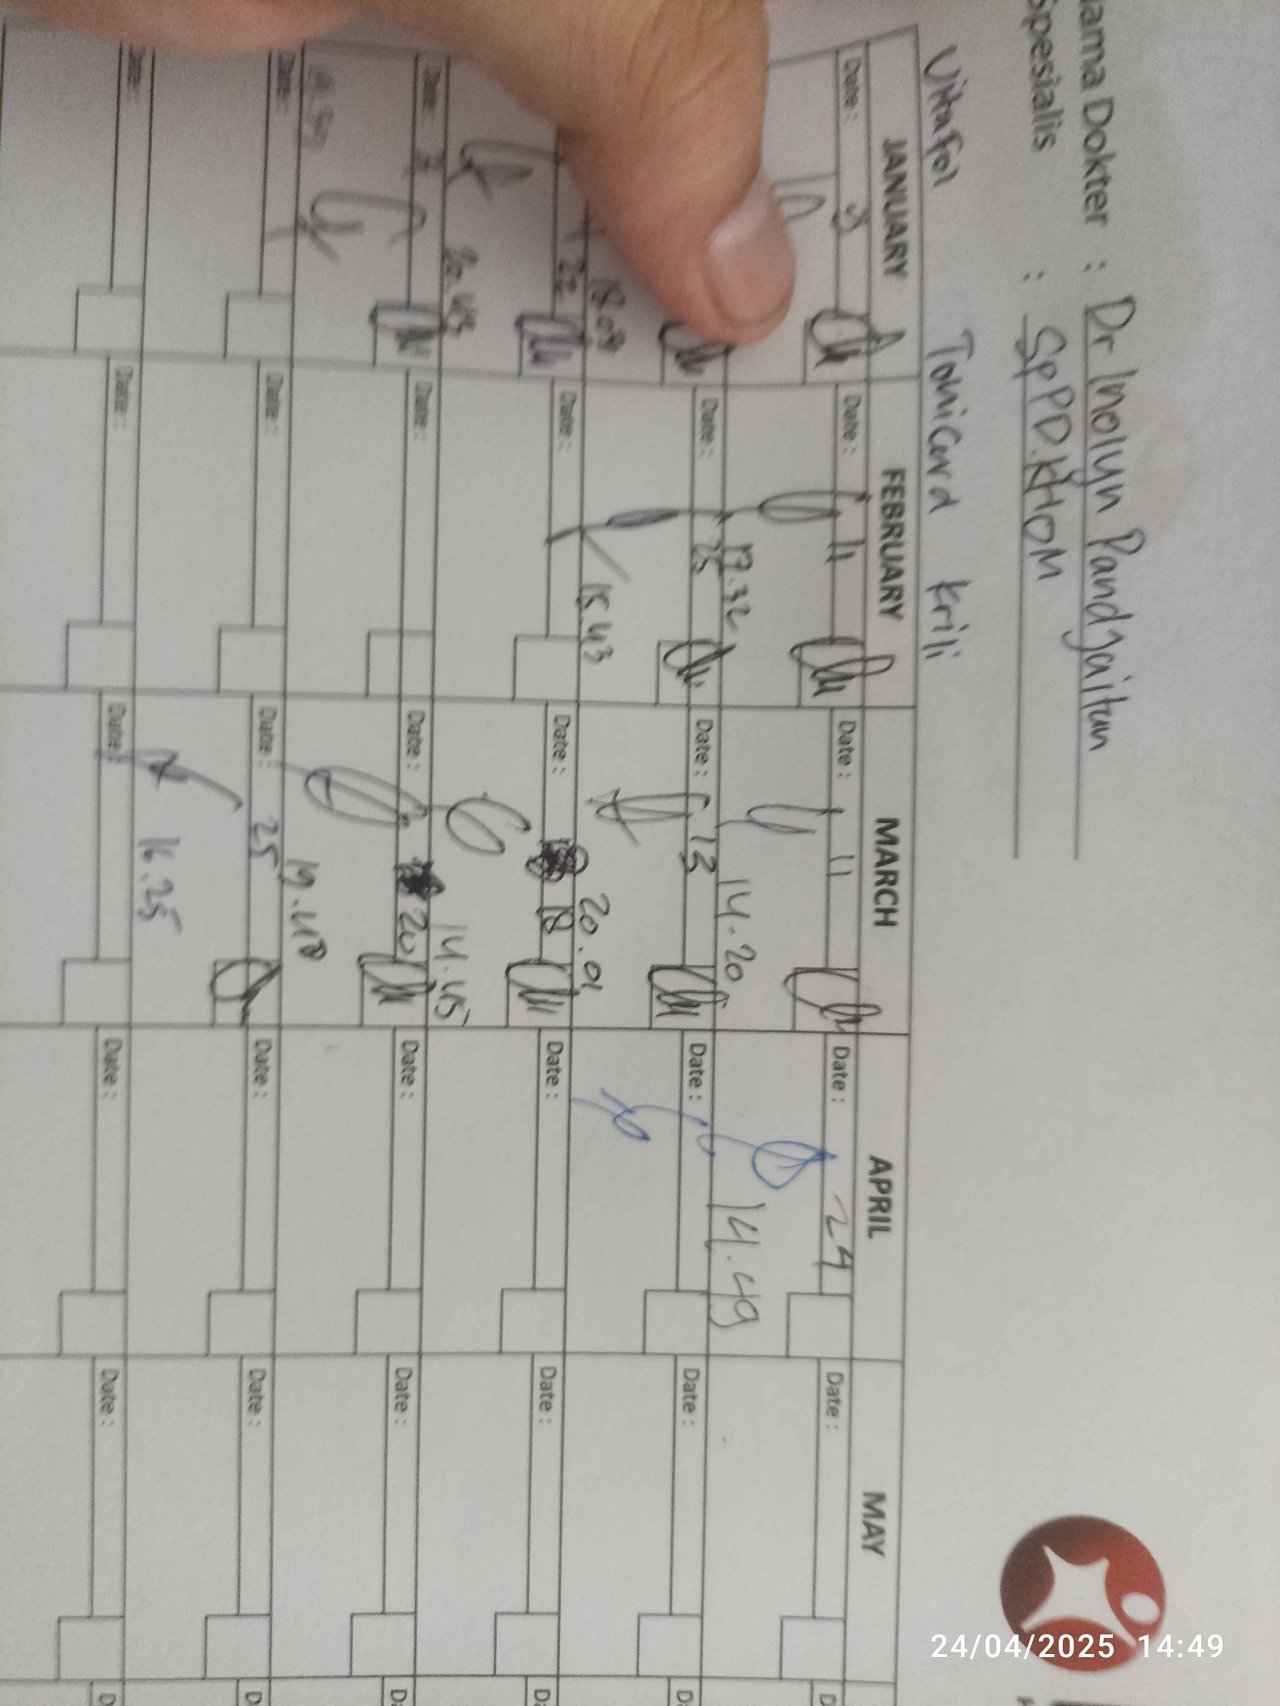 Nama Dokter : Dr Inolyn Pandjaitan
Spesialis : SpPD.KHOM
Vitafol Tonicard Krili
JANUARY FEBRUARY MARCH APRIL MAY
Date: 9 Date: 11 Date: 11 Date: 24 Date:
17.32 14.20 14.49
Date: 25 Date: 13 Date: Date:
18.09 15.43 20.01
22 Date: Date: 18 Date: Date:
20.43 14.45
Date: 7 Date: Date: 20 Date: Date:
19.40
Date: Date: Date: 25 Date: Date:
16.25
Date: Date: Date: Date: Date:
24/04/2025 14:49